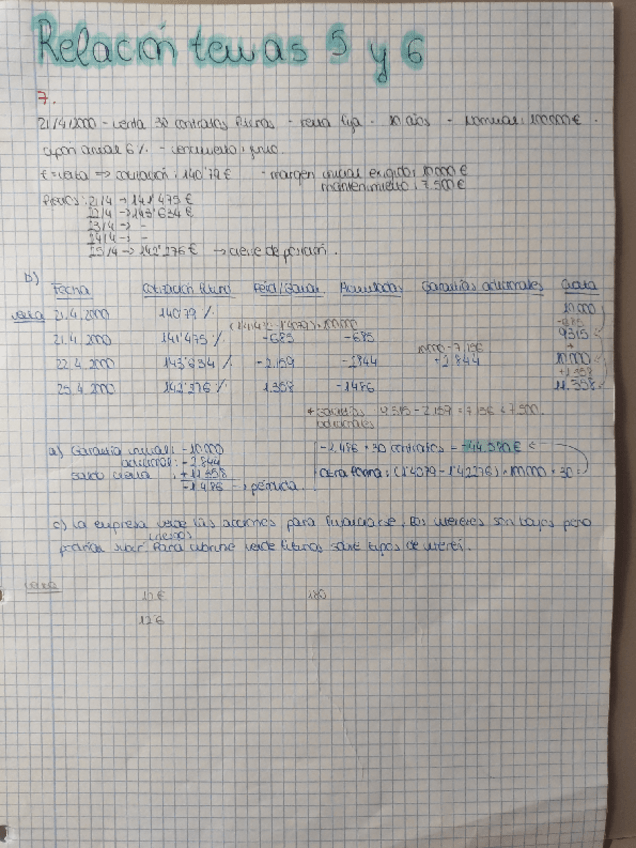 Relación temas 5 y 6
7.
21/4/2000 - venta 30 contratos futuros - renta fija - 10 años - nominal: 100000€.
cupón anual 6% - vencimiento: junio.
t = venta ⇒ cotización: 140'79€ - margen inicial exigido: 10000€
mantenimiento: 7.500€
Precios: 21/4 → 141'475€
22/4 → 143'634€
23/4 → -
24/4 → -
25/4 → 142'276€ → cierre de posición.
b)
Fecha Cotización futuro Pérd/Ganan Acumuladas Garantías adicionales Cuenta
venta 21.4.2000 140'79% 10.000
(1'41475-1'4079)·100000 -685
21.4.2000 141'475% -685 -685 9315
10000-7.156 +
22.4.2000 143'634% -2.159 -2844 +2.844 10.000
+1.358
25.4.2000 142'276% 1.358 -1486 11.358
* garantías 9315-2159 = 7156 < 7.500.
adicionales
a) Garantía inicial: -10.000
adicional: -2.844
saldo cuenta: +11.358
-1.486 → pérdida.
-1.486 · 30 contratos = -44.580€
Otra forma: (1'4079-1'42276)·100000·30
c) La empresa vende las acciones para financiarse, los intereses son bajos pero
podrían subir. Para cubrirme vende futuros sobre tipos de interés.
12€ 180
12€